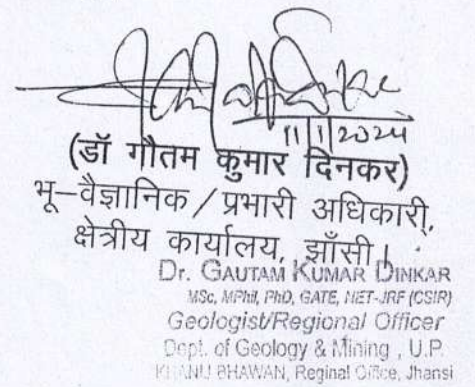 11/1/2024
(डॉ गौतम कुमार दिनकर)
भू–वैज्ञानिक / प्रभारी अधिकारी,
क्षेत्रीय कार्यालय, झाँसी।
Dr. GAUTAM KUMAR DINKAR
MSc, MPhil, PhD, GATE, NET-JRF (CSIR)
Geologist/Regional Officer
Dept. of Geology & Mining , U.P.
BHAWAN, Reginal Office, Jhansi